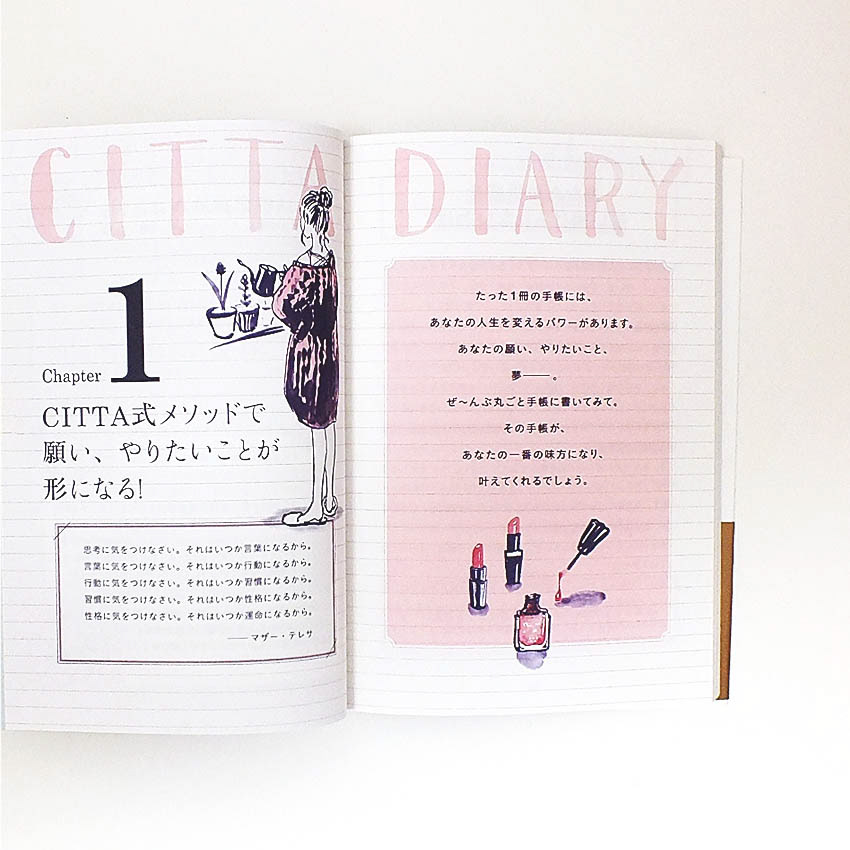 CITTA DIARY
Chapter 1
CITTA式メソッドで
願い、やりたいことが
形になる!
思考に気をつけなさい。それはいつか言葉になるから。
言葉に気をつけなさい。それはいつか行動になるから。
行動に気をつけなさい。それはいつか習慣になるから。
習慣に気をつけなさい。それはいつか性格になるから。
性格に気をつけなさい。それはいつか運命になるから。
――マザー・テレサ
たった1冊の手帳には、
あなたの人生を変えるパワーがあります。
あなたの願い、やりたいこと、
夢――。
ぜ〜んぶ丸ごと手帳に書いてみて。
その手帳が、
あなたの一番の味方になり、
叶えてくれるでしょう。